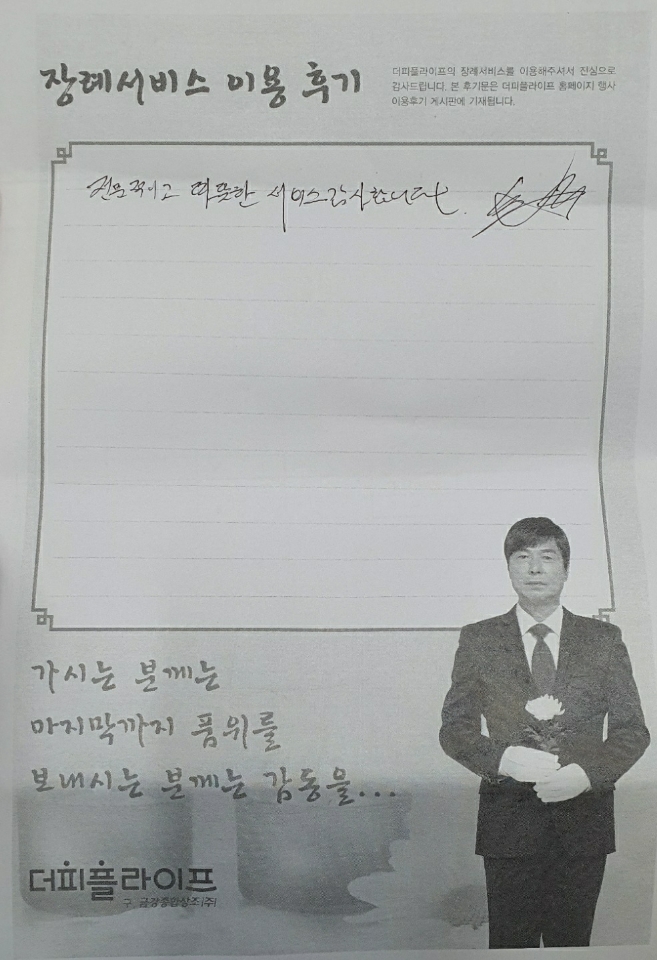 장례서비스 이용 후기
더피플라이프의 장례서비스를 이용해주셔서 진심으로
감사드립니다. 본 후기문은 더피플라이프 홈페이지 행사
이용후기 게시판에 기재됩니다.
전문적이고 따뜻한 서비스 감사합니다.
가시는 분께는
마지막까지 품위를
보내시는 분께는 감동을...
더피플라이프
구 금강종합상조(주)